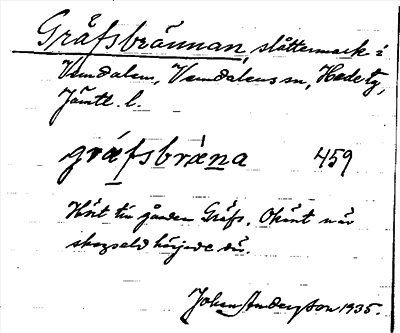 Gräfsbrännan, slåttermark i
Vemdalen, Vemdalens sn, Hede tg,
Jämtl. l.
gräfsbräna 459
Hört till gården Gräfs. Okänt när
skogseld härjade där.
Johan Andersson 1935.